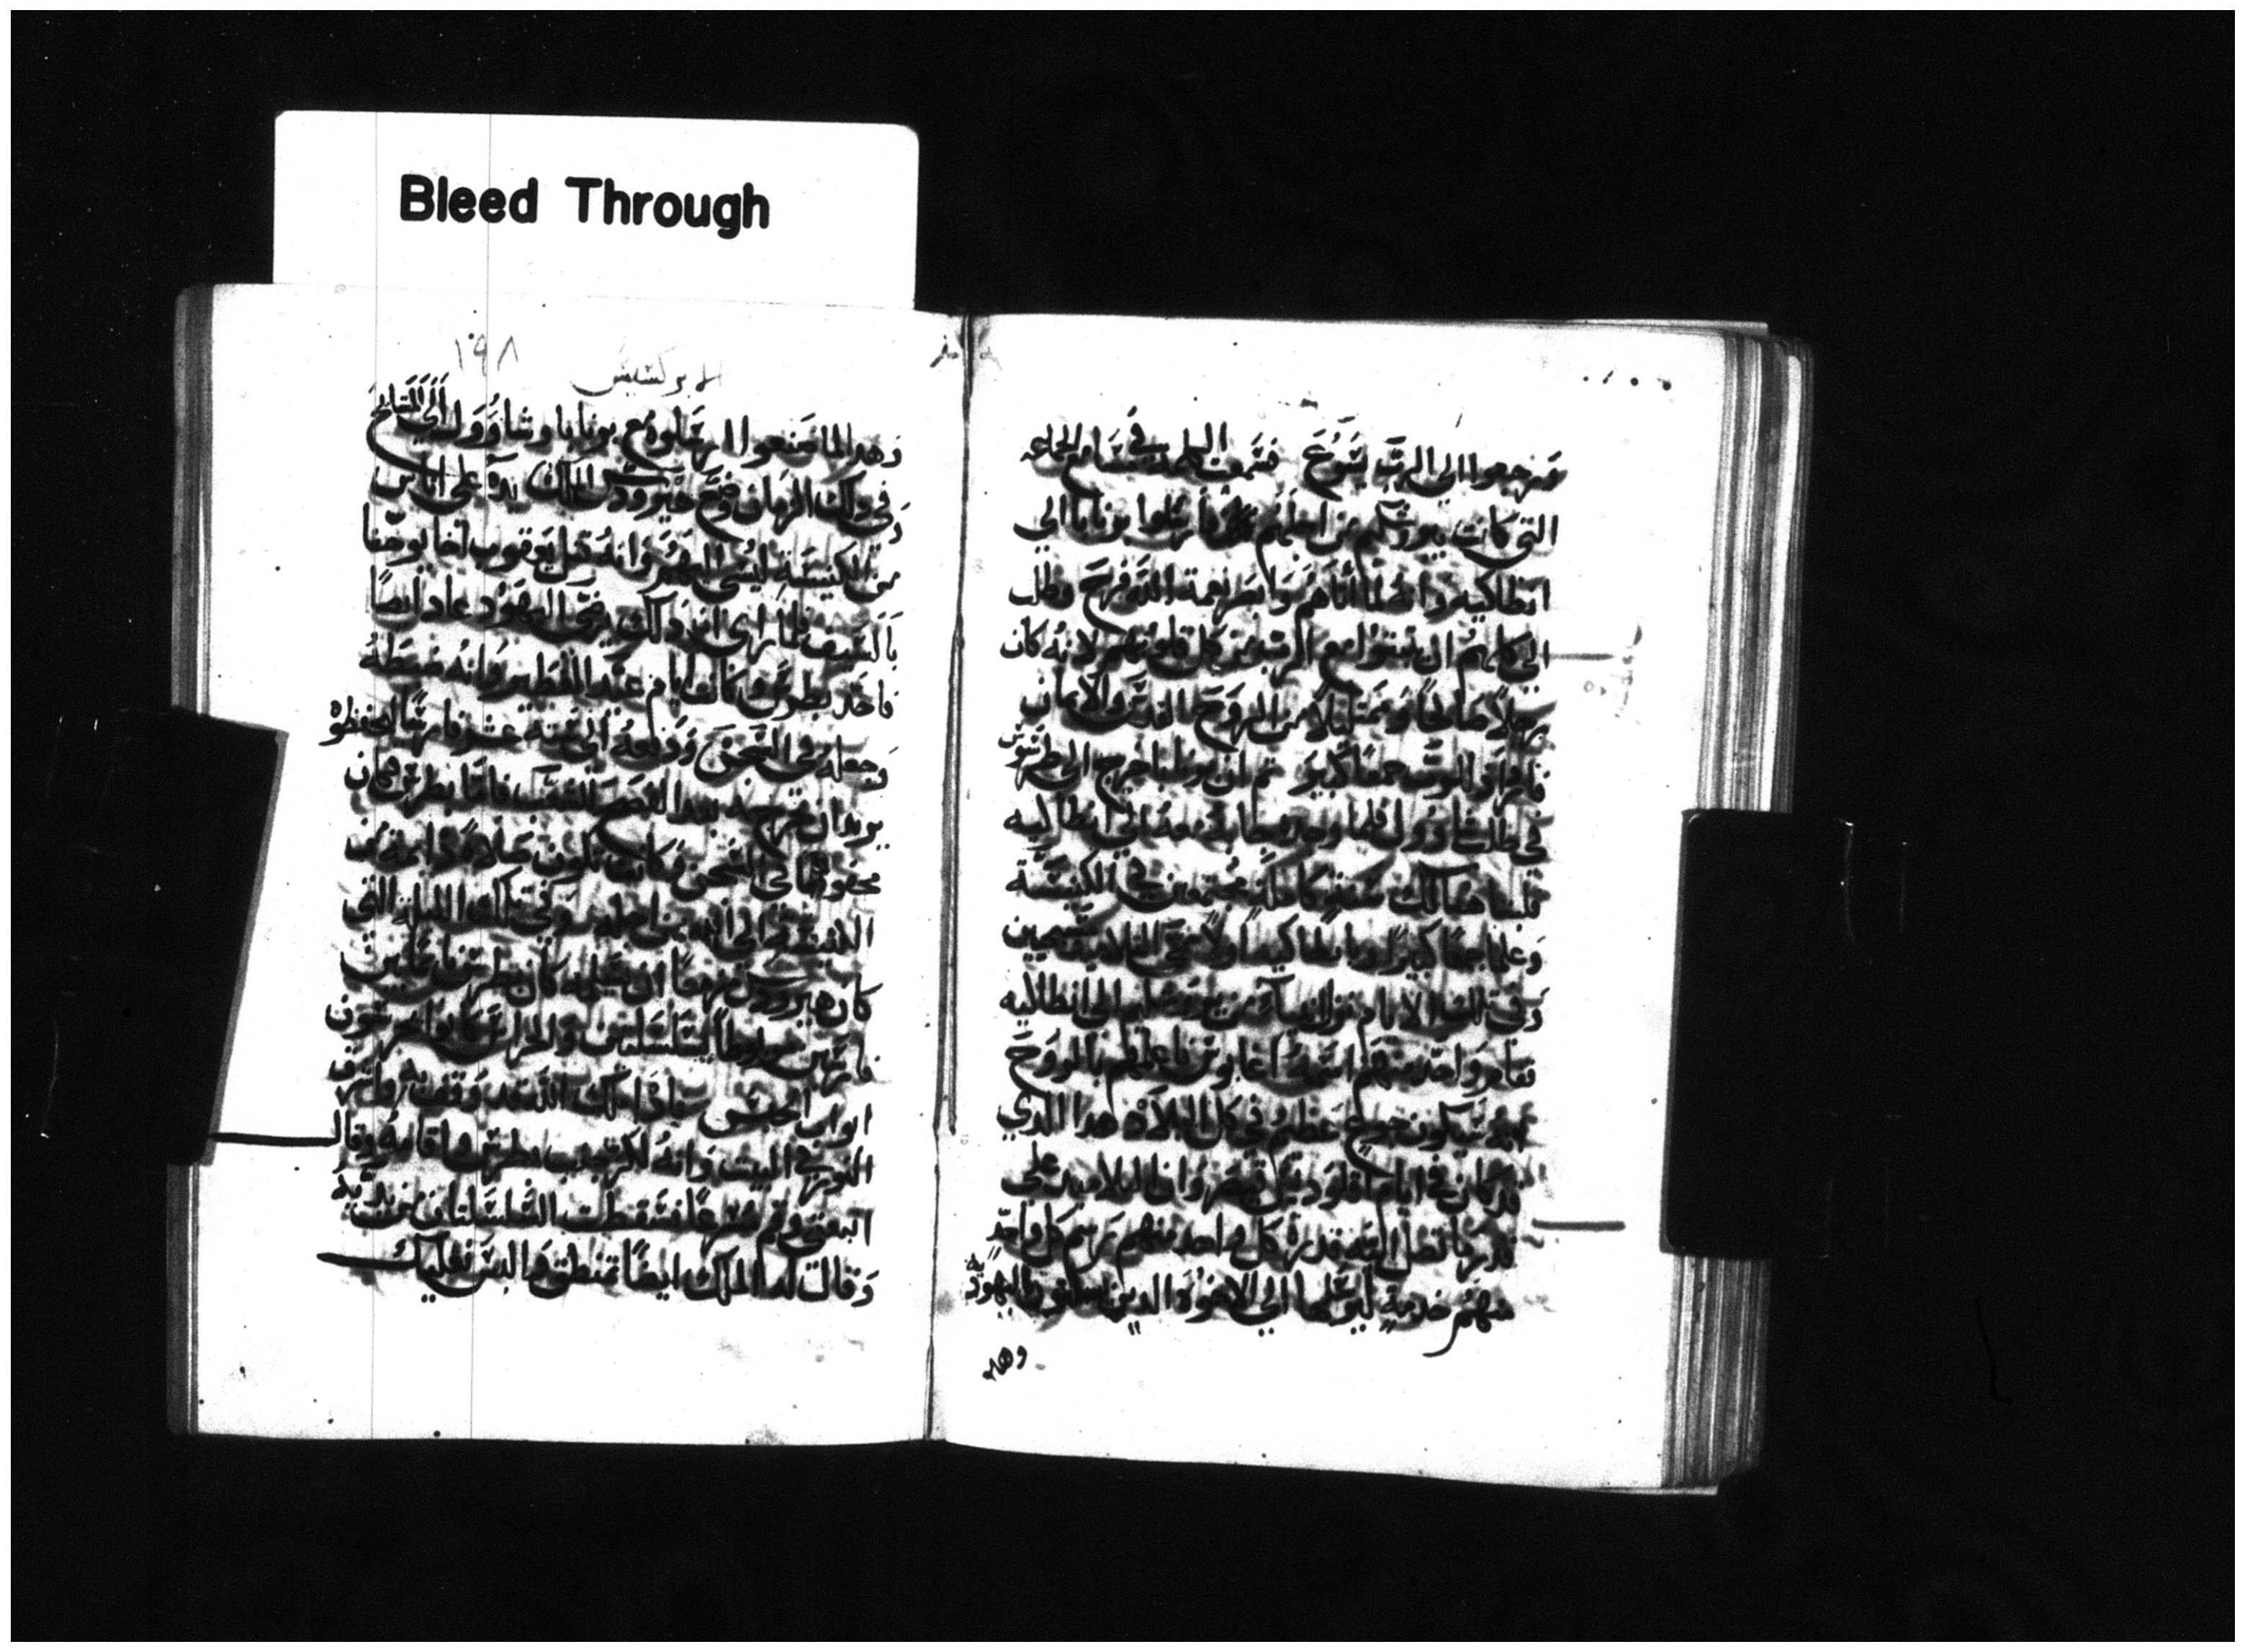 Bleed Through
ورجعوا الى الرب يسوع فسمعت الكلمة في مسامع الجماعه
التي كانت بيروشليم من اجلهم فارسلوا برنابا الي
انطاكيه وانه لما اتاهم وابصر نعمة الله فرح وطلب
الي كلهم ان يثبتوا مع الرب من كل قلوبهم لانه كان
رجلاً صالحاً وممتلئاً من الروح القدس والايمان
الرب جمعاً كبير ثم ان برنابا خرج الى طرسوس
في طلب شاوول فلما وجده به معه الي انطاكيه
هناك سنة كاملة مجتمعين في الكنيسة
وعلما جمعاً كبيراً
وفي تلك الايام نزل من يروشليم الى انطاكيه
فقام واحد منهم اسمه اغابوس فاعلمهم بالروح
انه سيكون جوع عظيم في كل البلاد هذا الذي
كان في ايام اقلوديوس قيصر
قدر كل واحد منهم رسم كل واحد
منهم خدمة ليرسلها الي الاخوة الدين باليهودية
وهد
١٩٨
الابركسيس
وهدا لما صنعوا ارسلوه مع برنابا وشاوول الي المشايخ
وفي ذلك الزمان وضع هيرودس الملك يده على اناس
من الكنيسة ليسي اليهم وانه قتل يعقوب اخا يوحنا
بالسيف فلما راى ان ذلك يرضي اليهود عاد ايضاً
فاخذ بطرس وكانت ايام عيد الفطير وانه ضبطه
وجعله في السجن ودفعه الي ستة عشر فارساً ليحفظوه
يريد ان يخرجه بعد الفصح للشعب فاما بطرس فكان
محفوظاً في السجن وكانت تكون صلاة دايمة من
الكنيسة الى الله من اجله وفي تلك الليلة التي
كان هيرودس مزمعاً ان كان بطرس نايم بين
فارسين مربوطاً بسلسلتين والحراس كانوا يحرسون
ابواب الحبس واذا ملاك الله قد وقف به واشرق
النور في البيت وانه لكز جنب بطرس واقامه وقال
اتبعني وقم مسرعاً فسقطت السلسلتان من يديه
وقالت له الملاك ايضاً تمنطق والبس نعليك